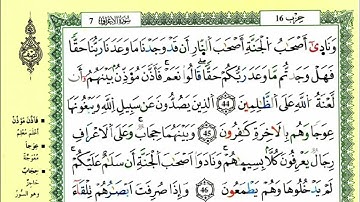 حزب 16
سورة الأعراف 7
وَنَادَىٰٓ أَصْحَٰبُ ٱلْجَنَّةِ أَصْحَٰبَ ٱلنَّارِ أَن قَدْ وَجَدْنَا مَا وَعَدَنَا رَبُّنَا حَقًّا
فَهَلْ وَجَدتُّم مَّا وَعَدَ رَبُّكُمْ حَقًّا قَالُوا۟ نَعَمْ فَأَذَّنَ مُؤَذِّنٌۢ بَيْنَهُمْ أَن
لَّعْنَةُ ٱللَّهِ عَلَى ٱلظَّٰلِمِينَ 44 ٱلَّذِينَ يَصُدُّونَ عَن سَبِيلِ ٱللَّهِ وَيَبْغُونَهَا
عِوَجًا وَهُم بِٱلْءَاخِرَةِ كَٰفِرُونَ 45 وَبَيْنَهُمَا حِجَابٌ وَعَلَى ٱلْأَعْرَافِ
رِجَالٌ يَعْرِفُونَ كُلًّۢا بِسِيمَىٰهُمْ وَنَادَوْا۟ أَصْحَٰبَ ٱلْجَنَّةِ أَن سَلَٰمٌ عَلَيْكُمْ
لَمْ يَدْخُلُوهَا وَهُمْ يَطْمَعُونَ 46 وَإِذَا صُرِفَتْ أَبْصَٰرُهُمْ تِلْقَآءَ
فَأَذَّنَ مُؤَذِّنٌ
عِوَجًا
حِجَابٌ
حاجز
وهو السور